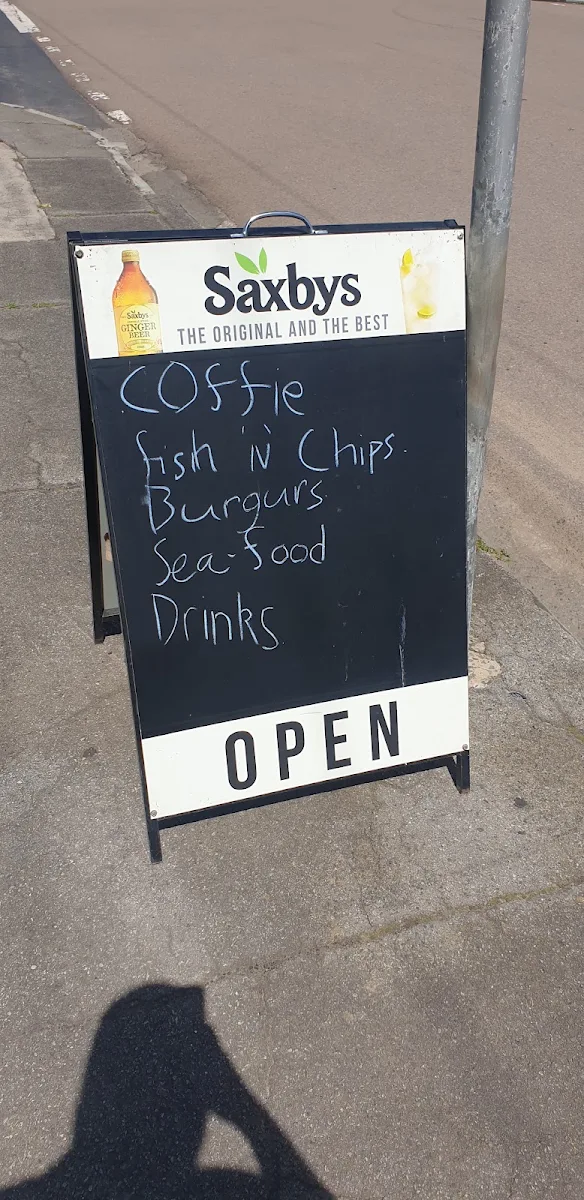 Saxbys
THE ORIGINAL AND THE BEST
Saxbys
GINGER
BEER
COffie
fish 'N' Chips.
Burgurs
Sea-food
Drinks
OPEN